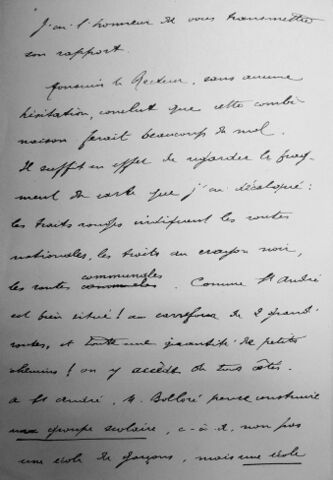 J'ai l'honneur de vous transmettre
son rapport.
Monsieur le Recteur, sans aucune
hésitation, conclut que cette combi
naison ferait beaucoup de mal.
Il suffit en effet de regarder le frag-
ment de carte que j'ai décalqué :
les traits rouges indiquent les routes
nationales, les traits au crayon noir,
les routes communales. Comme St André
est bien situé ! au carrefour de 2 grand'
routes, et toute une quantité de petits
chemins ! on y accède de tous côtés.
A St André, M. Bolloré pense construire
un groupe scolaire, c-à-d, non pas
une école de garçons, mais une école